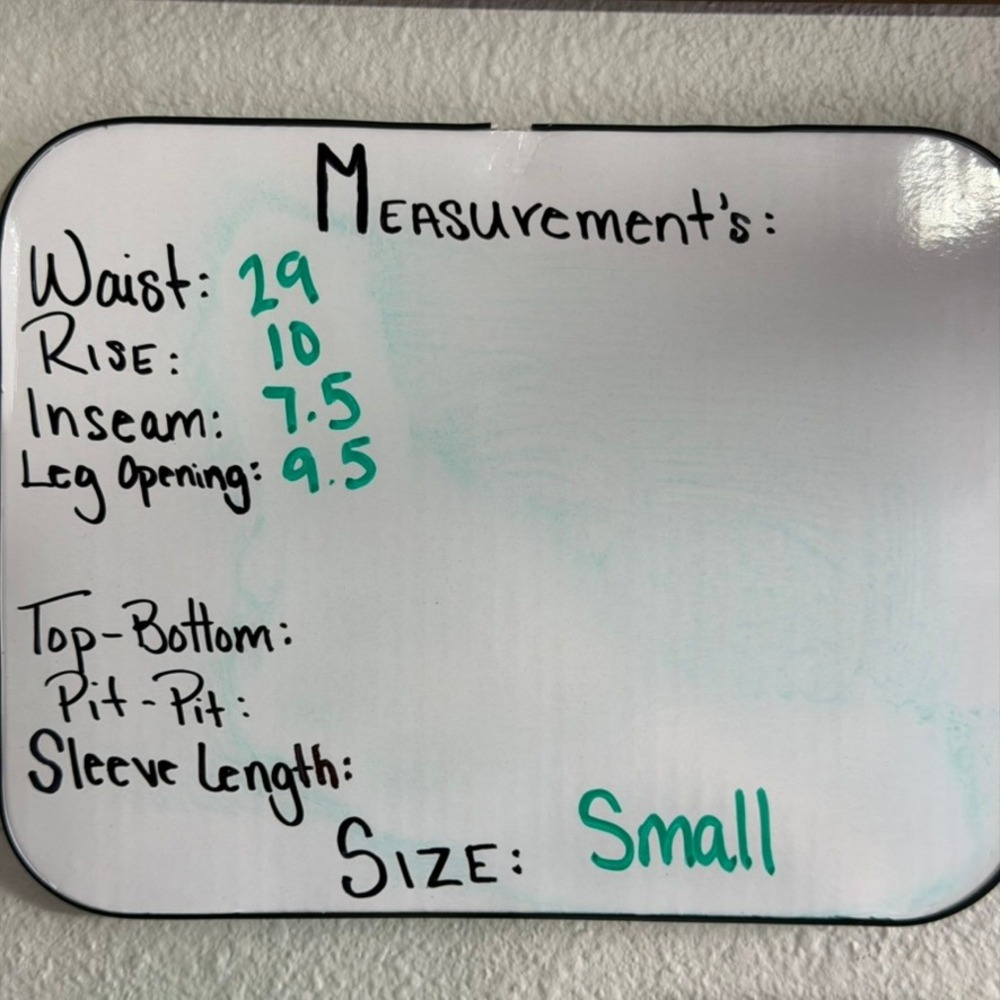 MEASurement's:
Waist: 29
RISE: 10
Inseam: 7.5
Leg Opening: 9.5
Top-Bottom:
Pit-Pit:
Sleeve Length:
SIZE: Small